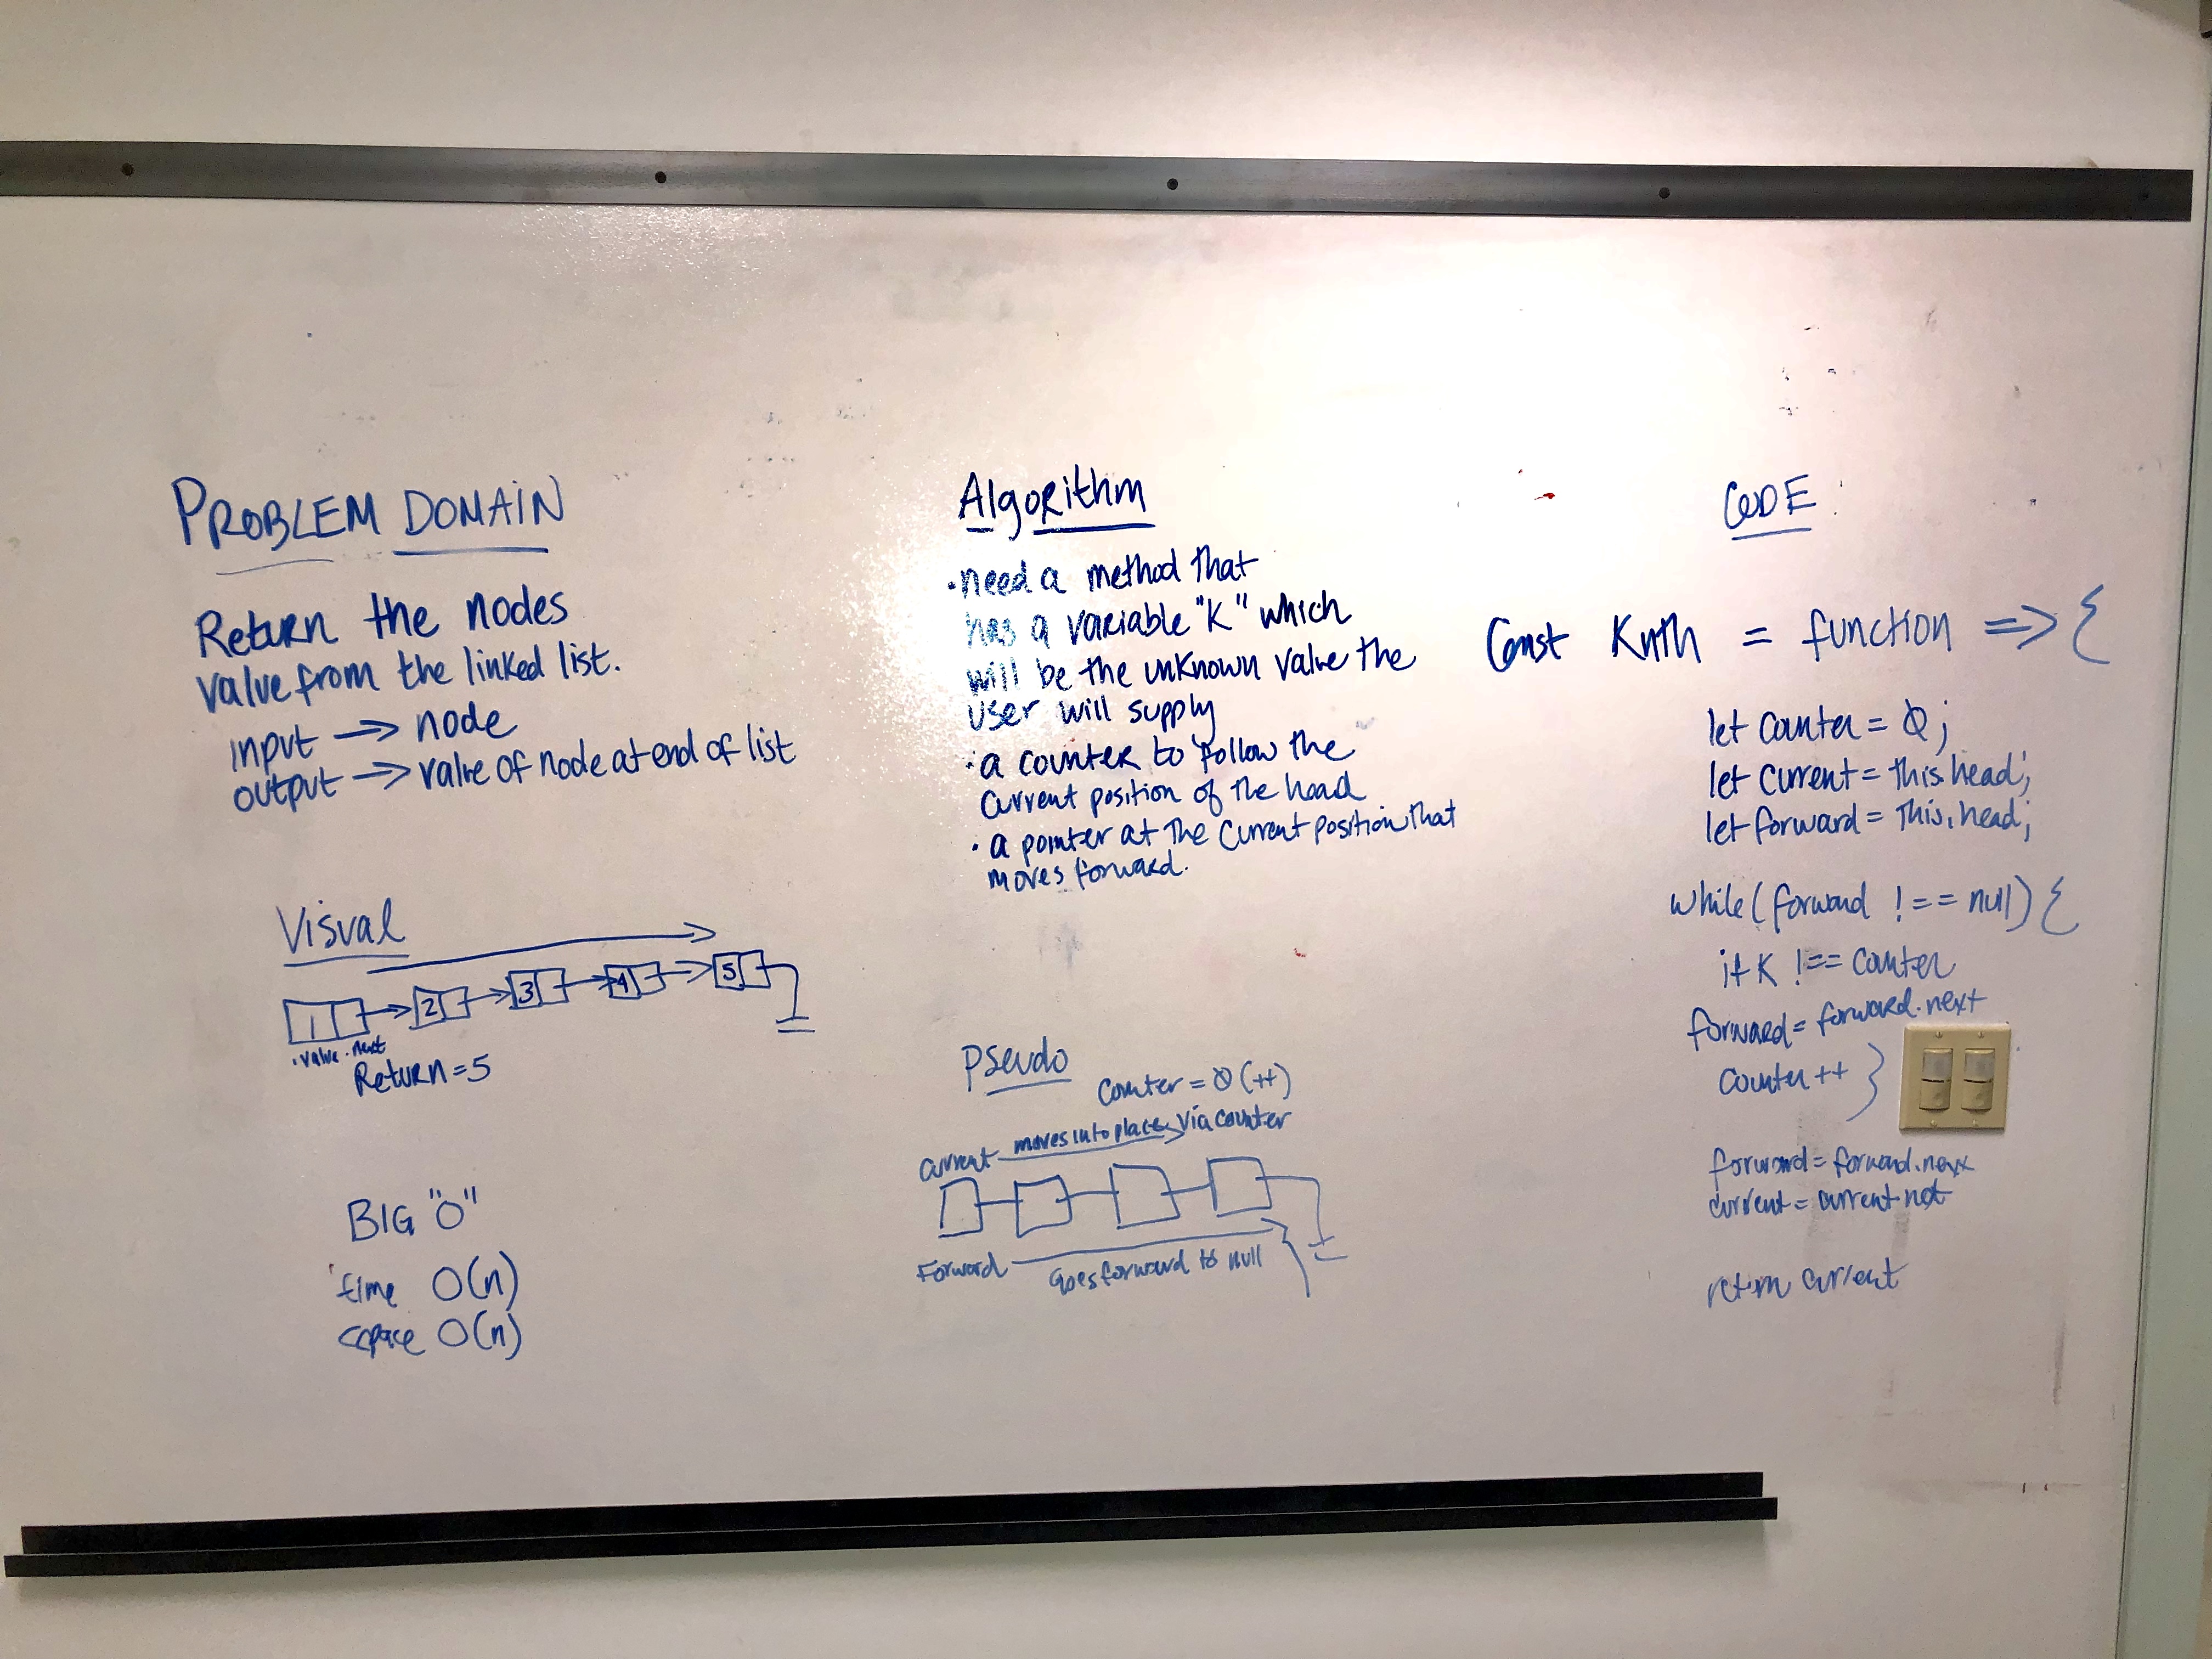 PROBLEM DOMAIN
Return the nodes
value from the linked list.
input → node
output → value of node at end of list
Visual
1 → 2 → 3 → 4 → 5
.value .next
Return = 5
BIG "O"
time O(n)
space O(n)
Algorithm
• need a method that
has a variable "K" which
will be the unknown value the
user will supply
• a counter to follow the
current position of the head
• a pointer at the current position that
moves forward.
Pseudo
counter = 0 (++)
current moves into place via counter
Forward goes forward to null
CODE:
Const Knth = function => {
let counter = 0;
let current = this.head;
let forward = this.head;
while (forward !== null) {
if K !== counter
forward = forward.next
counter ++ }
forward = forward.next
current = current.next
return current